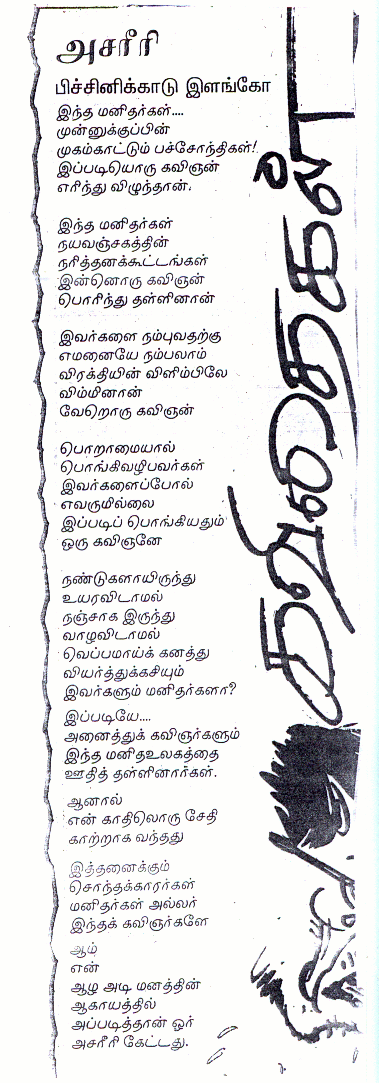 அசரீரி
பிச்சினிக்காடு இளங்கோ
இந்த மனிதர்கள்....
முன்னுக்குப்பின்
முகம்காட்டும் பச்சோந்திகள்!
இப்படியொரு கவிஞன்
எரிந்து விழுந்தான்.
இந்த மனிதர்கள்
நயவஞ்சகத்தின்
நரித்தனக்கூட்டங்கள்
இன்னொரு கவிஞன்
பொரிந்து தள்ளினான்
இவர்களை நம்புவதற்கு
எமனையே நம்பலாம்
விரக்தியின் விளிம்பிலே
விம்மினான்
வேறொரு கவிஞன்
பொறாமையால்
பொங்கிவழிபவர்கள்
இவர்களைப்போல்
எவருமில்லை
இப்படிப் பொங்கியதும்
ஒரு கவிஞனே
நண்டுகளாயிருந்து
உயரவிடாமல்
நஞ்சாக இருந்து
வாழவிடாமல்
வெப்பமாய்க் கனத்து
வியர்த்துக்கசியும்
இவர்களும் மனிதர்களா?
இப்படியே....
அனைத்துக் கவிஞர்களும்
இந்த மனிதஉலகத்தை
ஊதித் தள்ளினார்கள்.
ஆனால்
என் காதிலொரு சேதி
காற்றாக வந்தது
இத்தனைக்கும்
சொந்தக்காரர்கள்
மனிதர்கள் அல்லர்
இந்தக் கவிஞர்களே
ஆம்
என்
ஆழ அடி மனத்தின்
ஆகாயத்தில்
அப்படித்தான் ஓர்
அசரீரி கேட்டது.
கவிதைகள்